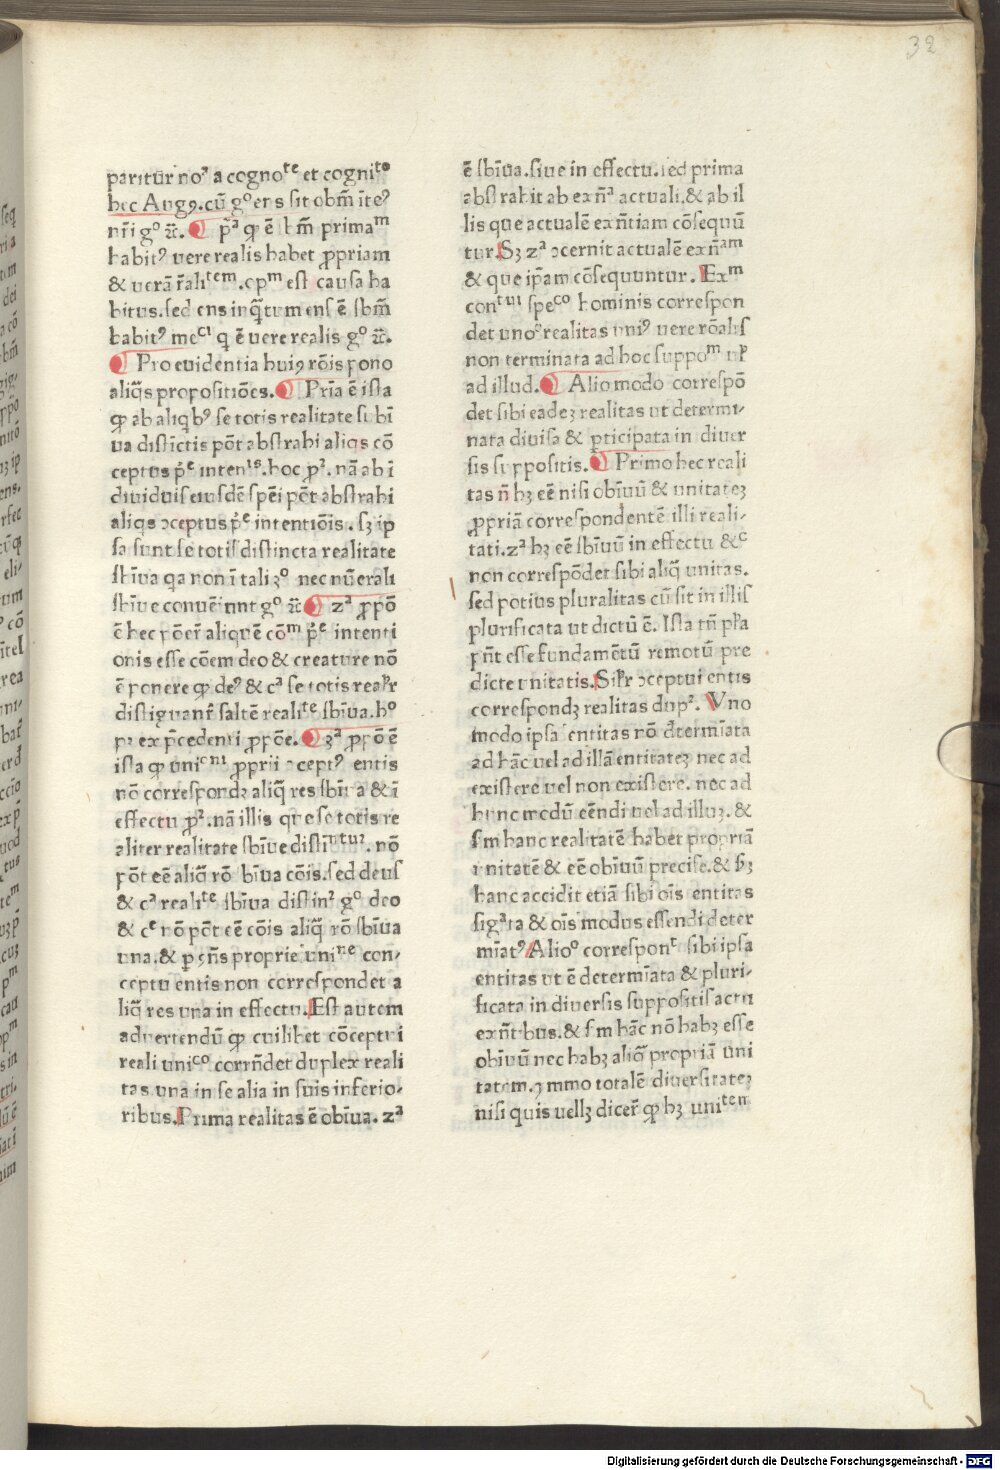 32
paritur noꝰ a cognoᵗᵉ et cogniᵗᵒ
hec Augꝯ. cū gᵒ ens sit obm̄ īteꝰ
nr̄i gᵒ ⁊c̄. p̄ᵃ ꝙ ē sbm̄ primaᵐ
habitꝰ vere realis habet ꝓpriam
& uerā r̄aliᵗᵉᵐ. opᵐ est causa ha
bitus. sed ens inq̄tum ens ē sbm̄
habitꝰ meᶜⁱ q̄ ē uere realis gᵒ ⁊c̄.
Pro euidentia huiꝯ rōis pono
aliq̄s propositiōes. Pria ē ista
ꝙ ab aliqbꝰ se totis realitate subī
ua distīctis pōt abstrahi aliqs cō
ceptus p̄ᵉ intenⁱˢ. hoc pꝛ. nā ab ī
diuiduis eiusdē spēi pōt abstrahi
aliqs ↄceptus p̄ᵉ intentiōis. sꝫ ip
sa sunt se totis distincta realitate
sbīua qa non ī tali ꝫᵒ nec nūerali
sbīue conueīunt gᵒ ⁊c̄ zᵃ ꝓpō
ē hec pōer̄ aliquē cōᵐ p̄ᵉ intenti
onis esse cōem deo & creature nō
ē ponere ꝙ deꝰ & cᵃ se totis realr̄
distiguant̄ saltē realiᵗᵉ sbīua. hᵒ
pꝛ ex p̄cedenti ꝓpōe. ꝫᵃ ꝓpō ē
ista ꝙ uniᶜⁿⁱ ꝓprii ↄceptꝰ entis
nō correspondꝫ aliq̄ res sbīua & ī
effectu pꝛ. nā illis que se totis re
aliter realitate sbīue distīⁿᵗᵘʳ. nō
pōt eē aliq̄ rō bīua cōis. sed deus
& cᵃ realiᵗᵉ sbīua distinꝛ gᵒ deo
& cᵉ nō pōt eē cōis aliq̄ rō sbīua
una. & p ꝯn̄s proprie uniⁿᵉ con-
ceptu entis non correspondet a
liq̄ res una in effectu. Est autem
aduertendū ꝙ cuilibet cōceptui
reali uniᶜᵒ corrn̄det duplex reali
tas una in se alia in suis inferio-
ribus. Prima realitas ē obīua. zᵃ
ē sbīua. siue in effectu. sed prima
abstrahit ab exn̄ᵃ actuali. & ab il
lis que actualē exn̄tiam cōsequū
tur. Sꝫ zᵃ ↄcernit actualē exn̄ᵃᵐ
& que ip̄am cōsequuntur. Exᵐ
conᵗᵘⁱ speᶜᵒ hominis correspon
det uno realitas uniꝰ uere rōalis
non terminata ad hoc suppoᵐ ul̄
ad illud. Alio modo correspō
det sibi eadeꝫ realitas ut determi-
nata diuisa & ꝑticipata in diuer
sis suppositis. Primo hec reali
tas n̄ hꝫ eē nisi obīuū & unitateꝫ
ꝓpriā correspondentē illi reali-
tati. zᵃ hꝫ eē sbīuū in effectu &ᶜ
non correspōdet sibi aliq̄ unitas.
sed potius pluralitas cū sit in illis
plurificata ut dictū ē. Ista tn̄ pl̄a
pn̄t esse fundamētū remotū pre
dicte unitatis. Sil̄r ↄceptui entis
correspondꝫ realitas dupꝛ. Vno
modo ipsa entitas nō đtermīata
ad hāc uel ad illā entitateꝫ nec ad
existere uel non existere. nec ad
hunc modū eēndi uel ad illuꝫ. &
sm hanc realitatē habet propriā
unitatē & eē obīuū precise. & sꝫ
hanc accidit etiā sibi oīs entitas
sigᵃta & oīs modus essendi deter
mīatꝰ Alioᵒ corresponᵗ sibi ipsa
entitas ut ē determīata & pluri-
ficata in diuersis suppositis actu
exn̄tibus. & sm hāc nō habꝫ esse
obīuū nec habꝫ aliq̄ᵃ propriā uni
tatem. ꝯmmo totalē diuersitateꝫ
nisi quis uellꝫ dicer̄ ꝙ hꝫ uniᵗᵉⁿ
Digitalisierung gefördert durch die Deutsche Forschungsgemeinschaft - DFG